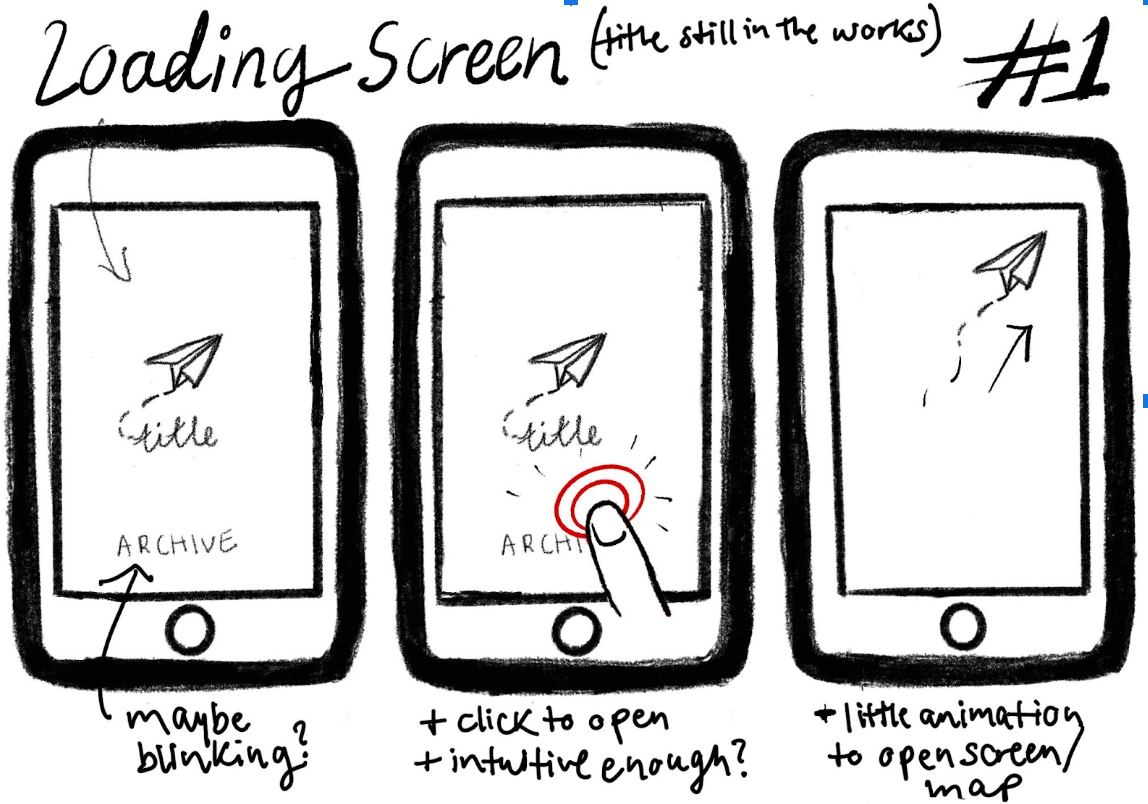 Loading Screen (title still in the works)
#1
title
ARCHIVE
title
ARCHI
maybe
blinking?
+ click to open
+ intuitive enough?
+ little animation
to open screen/
map